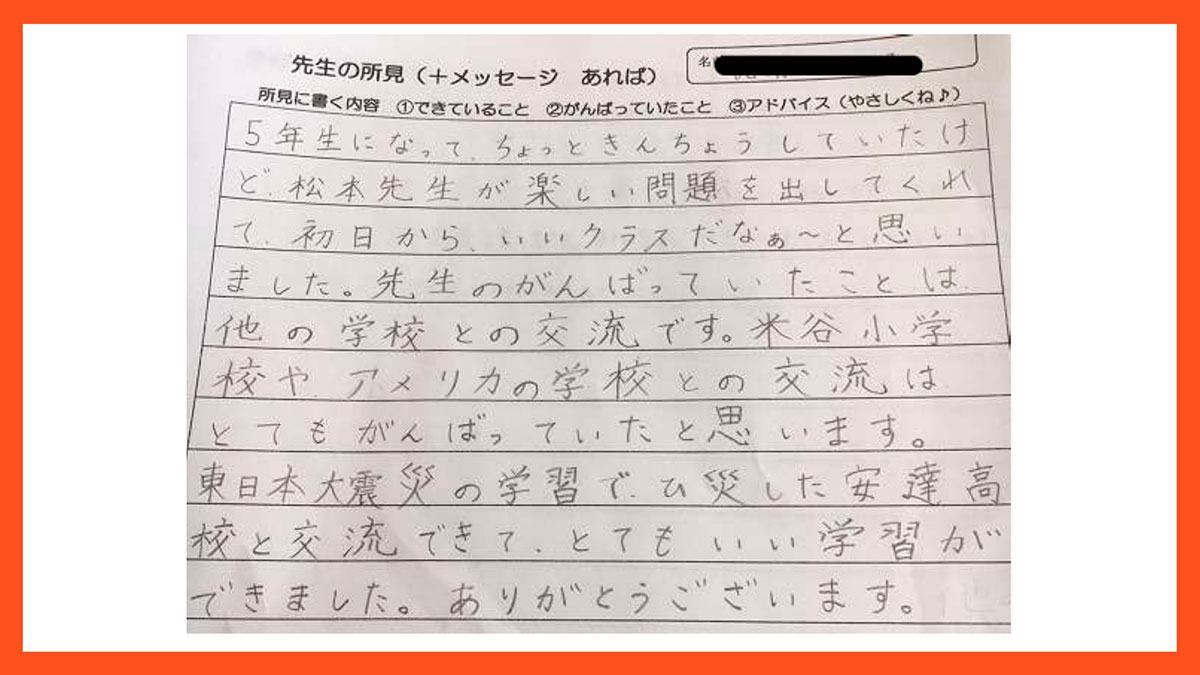 先生の所見（＋メッセージ　あれば）
名
所見に書く内容　①できていること　②がんばっていたこと　③アドバイス（やさしくね♪）
5年生になって、ちょっときんちょうしていたけ
ど、松本先生が楽しい問題を出してくれ
て、初日から、いいクラスだなぁ～と思い
ました。先生のがんばっていたことは、
他の学校との交流です。米谷小学
校や、アメリカの学校との交流は
とてもがんばっていたと思います。
東日本大震災の学習で、ひ災した安達高
校と交流できて、とてもいい学習が
できました。ありがとうございます。